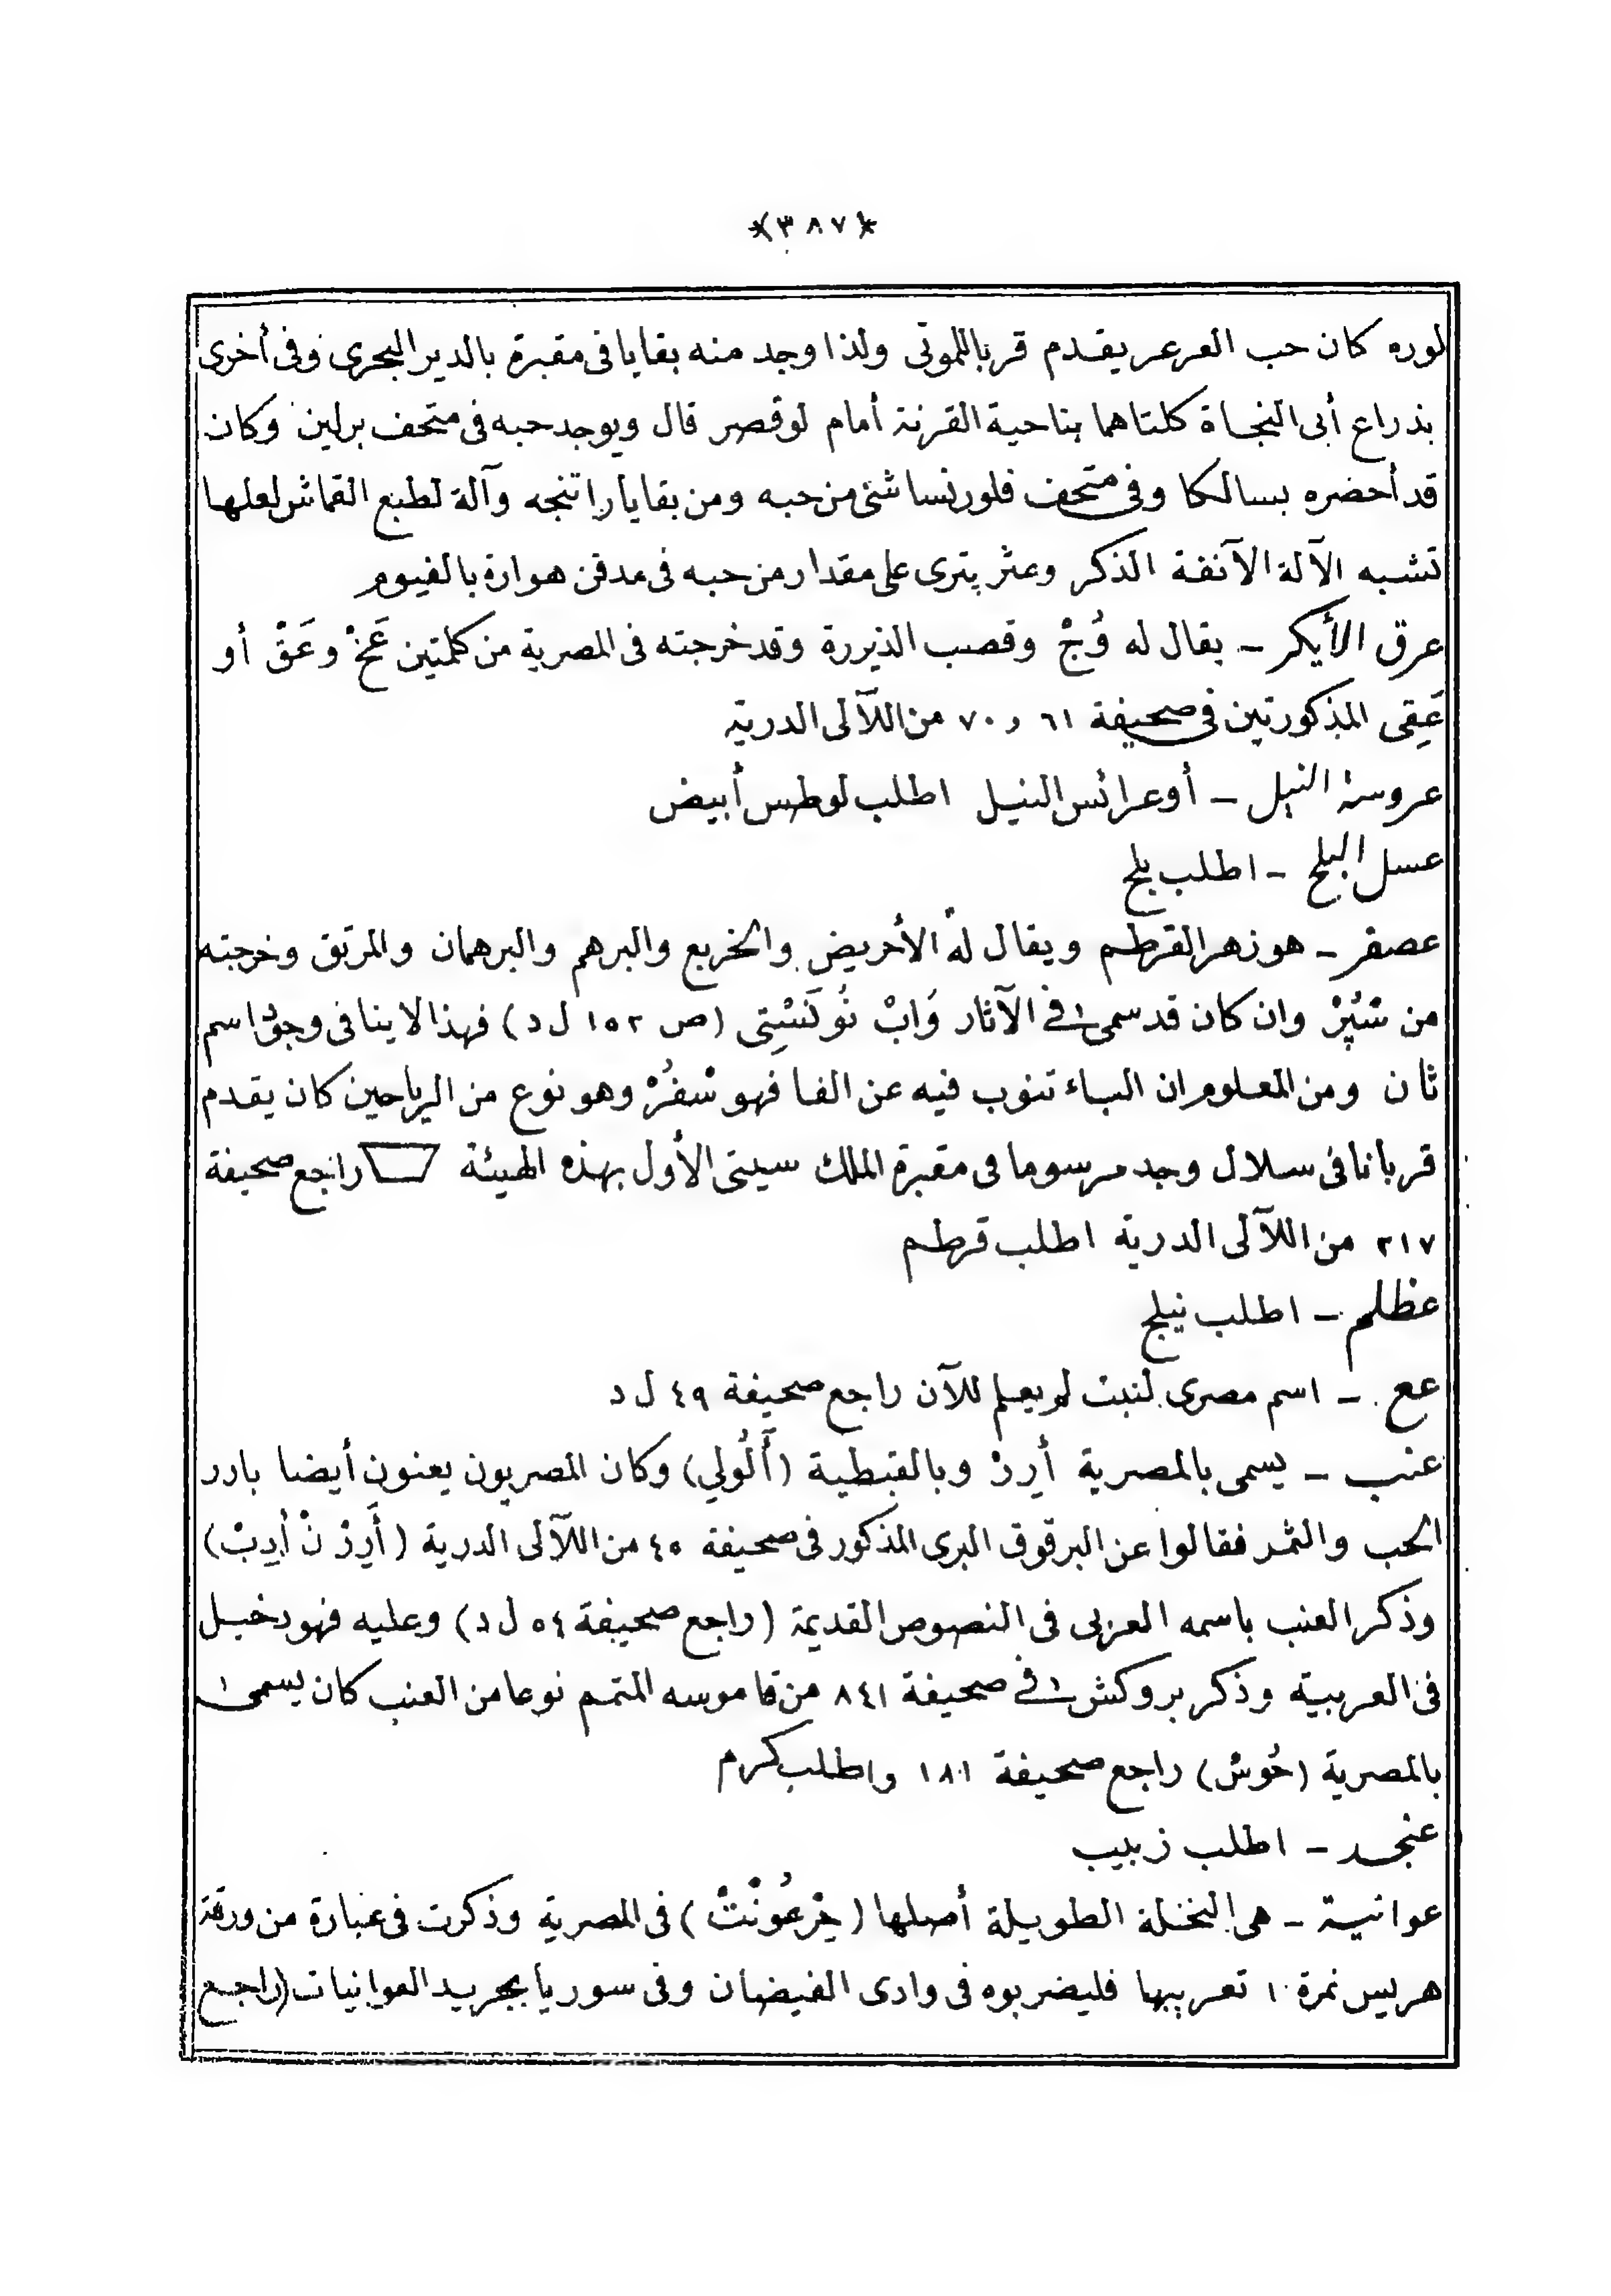 *(٣٨٧)*
لوره كان حب العرعر يقدم قربا للموتى ولذا وجد منه بقايا فى مقبرة بالدير البحرى وفى أخرى
بذراع أبى النجاة كلتاهما بناحية القرنة أمام لوقصر قال ويوجد حبه فى متحف برلين وكان
قد أحضره بسالكا وفى متحف فلورنسا شئ من حبه ومن بقايا راتنجه وآلة لطبع القماش لعلها
تشبه الآلة الآنفة الذكر وعثر پترى على مقدار من حبه فى مدفن هوارة بالفيوم
عرق الأيكر ــ يقال له وُجْ وقصب الذريرة وقد خرجته فى المصرية من كلمتين عَخْ وعَقْ أو
عَقِى المذكورتين فى صحيفة ٦١ و ٧٠ من اللآلى الدرية
عروسة النيل ــ أو عرائس النيل اطلب لوطس أبيض
عسل البلح ــ اطلب بلح
عصفر ــ هو زهر القرطم ويقال له الأحريض والخريع والبرهم والبرهمان والمرتق وخرجته
من سْپُرْ وان كان قد سمى فى الآثار وَابْ نُو نَسْتِى (ص ١٥٢ ل د) فهذا لا ينافى وجود اسم
ثان ومن المعلوم ان الباء تنوب فيه عن الفا فهو سْفُرْ وهو نوع من الرياحين كان يقدم
قربانا فى سلال وجد مرسوما فى مقبرة الملك سيتى الأول بهذه الهيئة راجع صحيفة
٢١٧ من اللآلى الدرية اطلب قرطم
عظلم ــ اطلب نيلج
عع ــ اسم مصرى لنبت لم يعلم للآن راجع صحيفة ٤٩ ل د
عنب ــ يسمى بالمصرية أَرِرْ وبالقبطية (أَلُولِي) وكان المصريون يعنون أيضا بارر
الحب والثمر فقالوا عن البرقوق البرى المذكور فى صحيفة ٤٥ من اللآلى الدرية (أَرِرْ نْ أَدِبْ)
وذكر العنب باسمه العربى فى النصوص القديمة (راجع صحيفة ٥٤ ل د) وعليه فهو دخيل
فى العربية وذكر بروكش فى صحيفة ٨٤١ من قاموسه المتمم نوعا من العنب كان يسمى
بالمصرية (حُوسْ) راجع صحيفة ١٨١ واطلب كرم
عنجد ــ اطلب زبيب
عوانية ــ هى النخلة الطويلة أصلها (خِرْعُونْتْ) فى المصرية وذكرت فى عبارة من ورقة
هريس نمرة ١٠ تعريبها فليضربوه فى وادى الفيضان وفى سوريا بجريد العوانيات (راجع